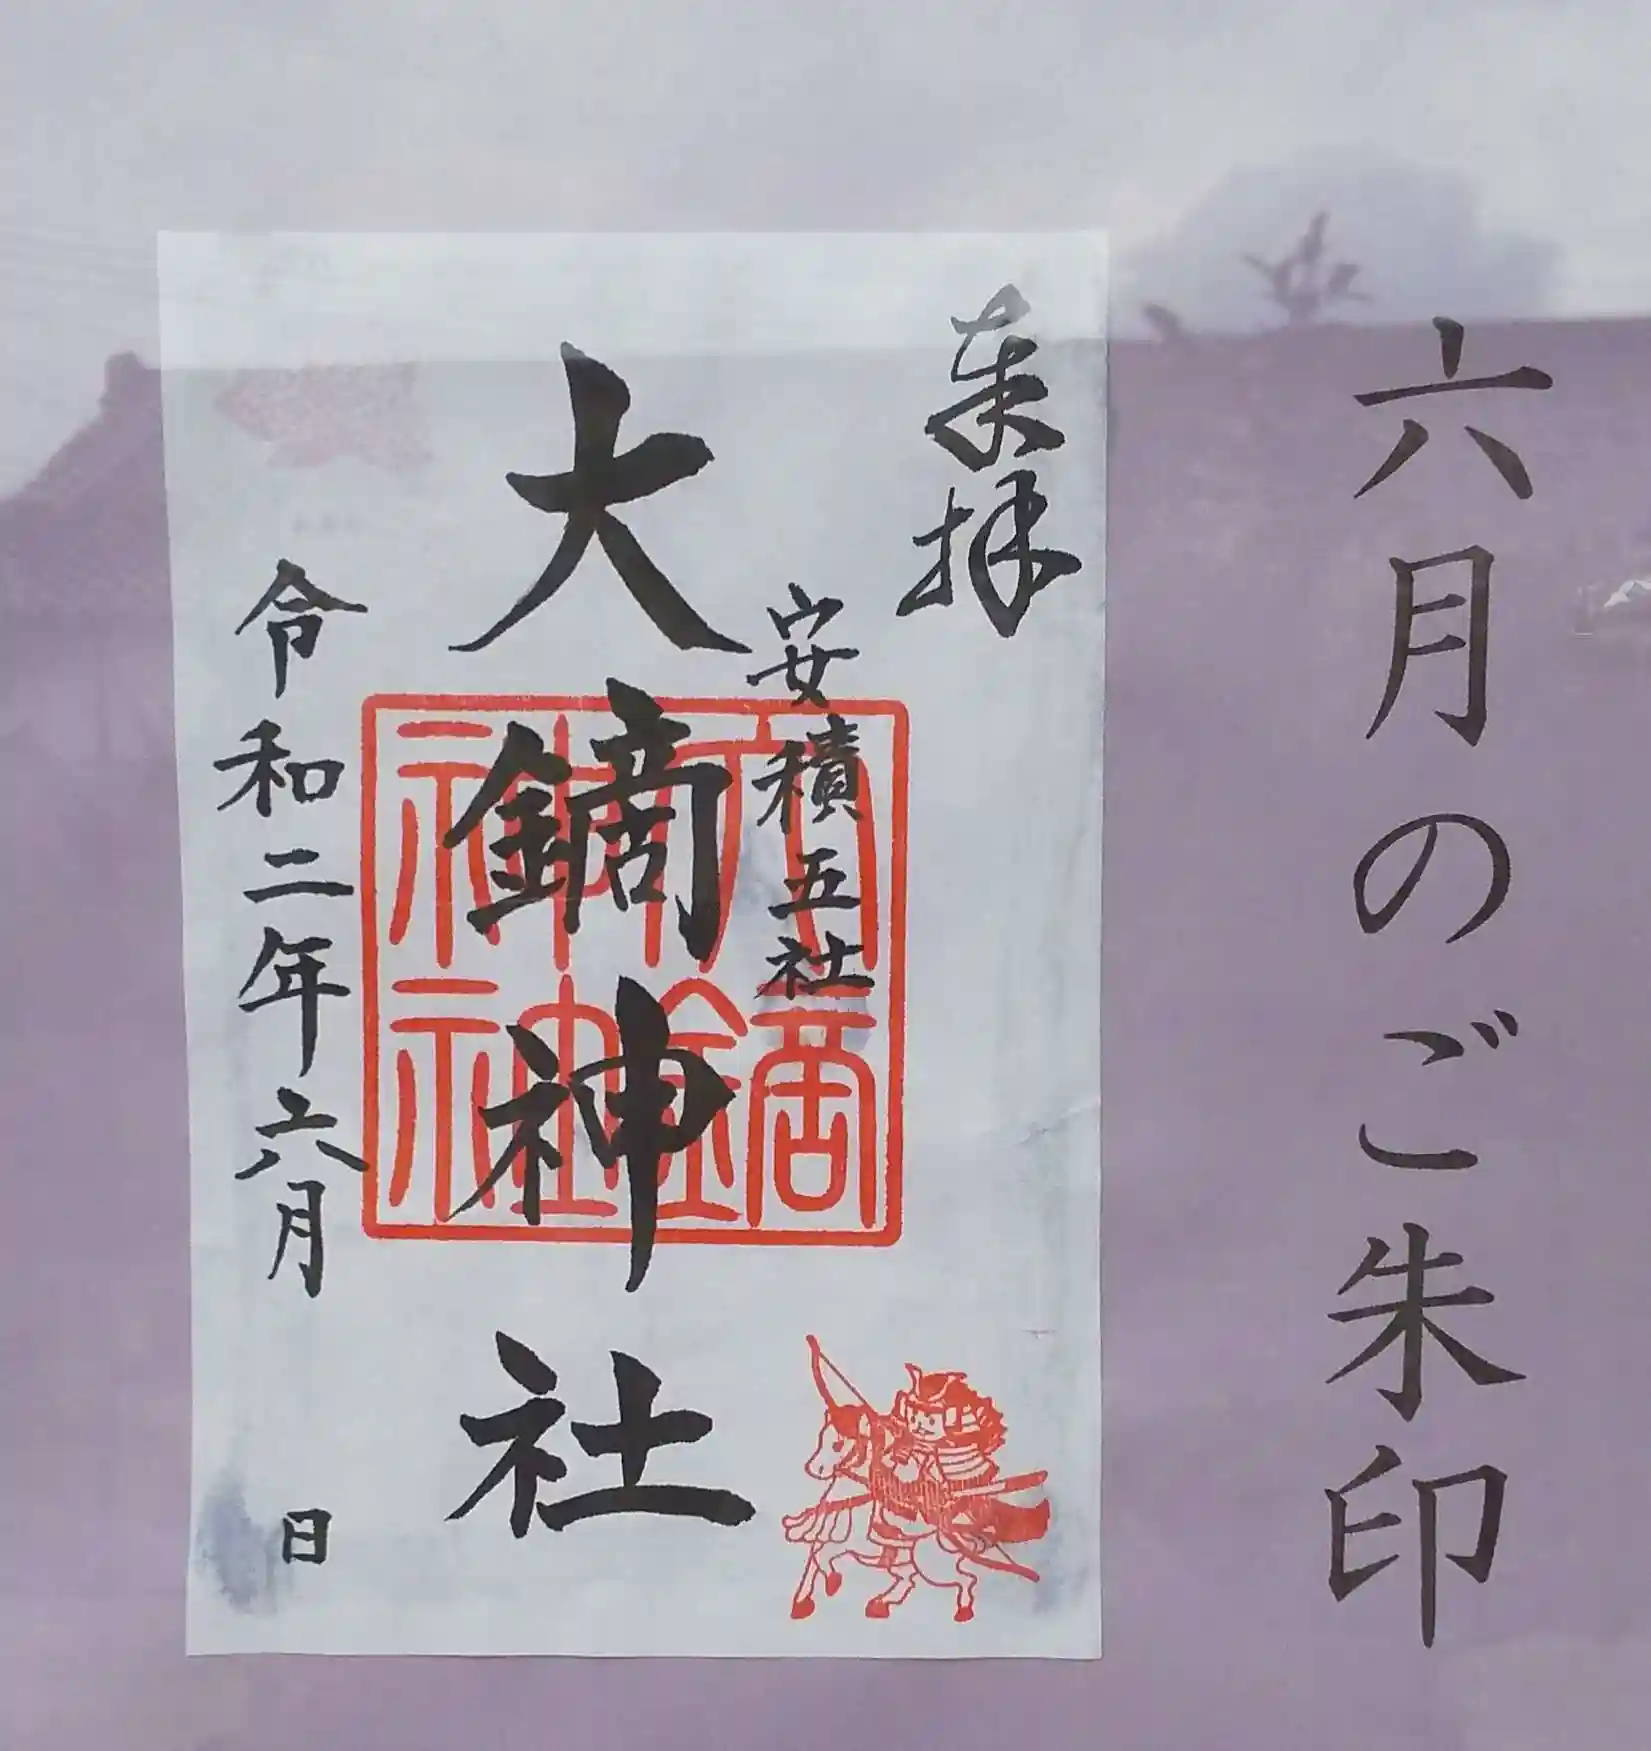 六月のご朱印
奉拝
安積五社
大鏑神社
大鏑神社
令和二年六月 日